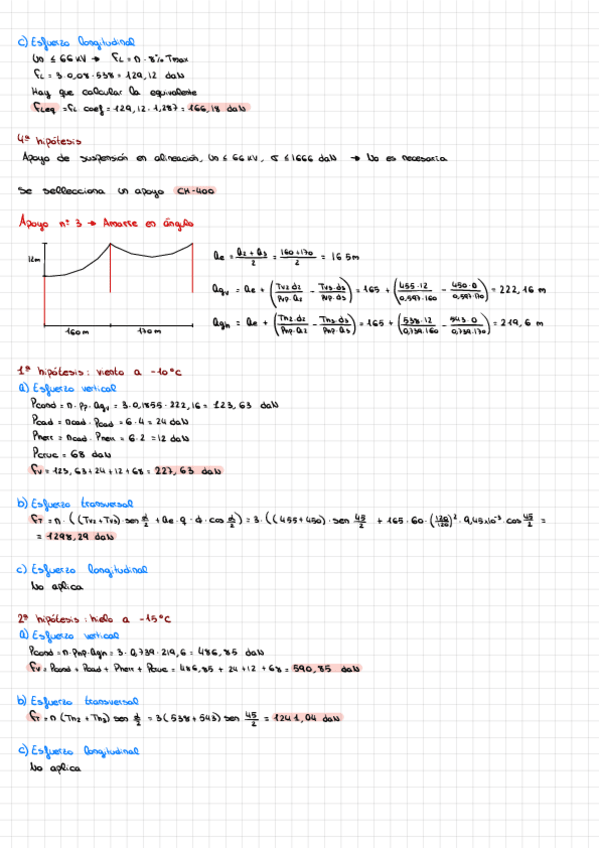 c) Esfuerzo longitudinal
Un ≤ 66 kV → FL = n · 8% Tmax
FL = 3 · 0,08 · 538 = 129,12 daN
Hay que calcular la equivalente
FLeq = FL coef = 129,12 · 1,287 = 166,18 daN
4ª hipótesis
Apoyo de suspensión en alineación, Un ≤ 66 kV, σ ≤ 1666 daN → No es necesaria
Se sellecciona un apoyo CH-400
Apoyo nº 3 → Amarre en ángulo
12m
160m
170m
ae = (a2 + a3)/2 = (160+170)/2 = 165m
agv = ae + (Tv2·d2/Pvp·a2 - Tv3·d3/Pvp·a3) = 165 + (455·12/0,597·160 - 450·0/0,597·170) = 222,16 m
agh = ae + (Th2·d2/Php·a2 - Th3·d3/Php·a3) = 165 + (538·12/0,739·160 - 543·0/0,739·170) = 219,6 m
1ª hipótesis: viento a -10°C
a) Esfuerzo vertical
Pcond = n · Pp · agv = 3 · 0,1855 · 222,16 = 123,63 daN
Pcad = ncad · Pcad = 6 · 4 = 24 daN
Pherr = ncad · Pherr = 6 · 2 = 12 daN
Pcruc = 68 daN
FV = 123,63 + 24 + 12 + 68 = 227,63 daN
b) Esfuerzo transversal
FT = n · ((Tv2 + Tv3) · sen α/2 + ae · q · d · cos α/2) = 3 · ((455 + 450) · sen 45/2 + 165 · 60 · (120/120)² · 9,45x10⁻³ · cos 45/2 =
= 1298,29 daN
c) Esfuerzo longitudinal
No aplica
2ª hipótesis: hielo a -15°C
a) Esfuerzo vertical
Pcond = n · Php · agh = 3 · 0,739 · 219,6 = 486,85 daN
FV = Pcond + Pcad + Pherr + Pcruc = 486,85 + 24 + 12 + 68 = 590,85 daN
b) Esfuerzo transversal
FT = n (Th2 + Th3) sen α/2 = 3(538 + 543) sen 45/2 = 1241,04 daN
c) Esfuerzo longitudinal
No aplica